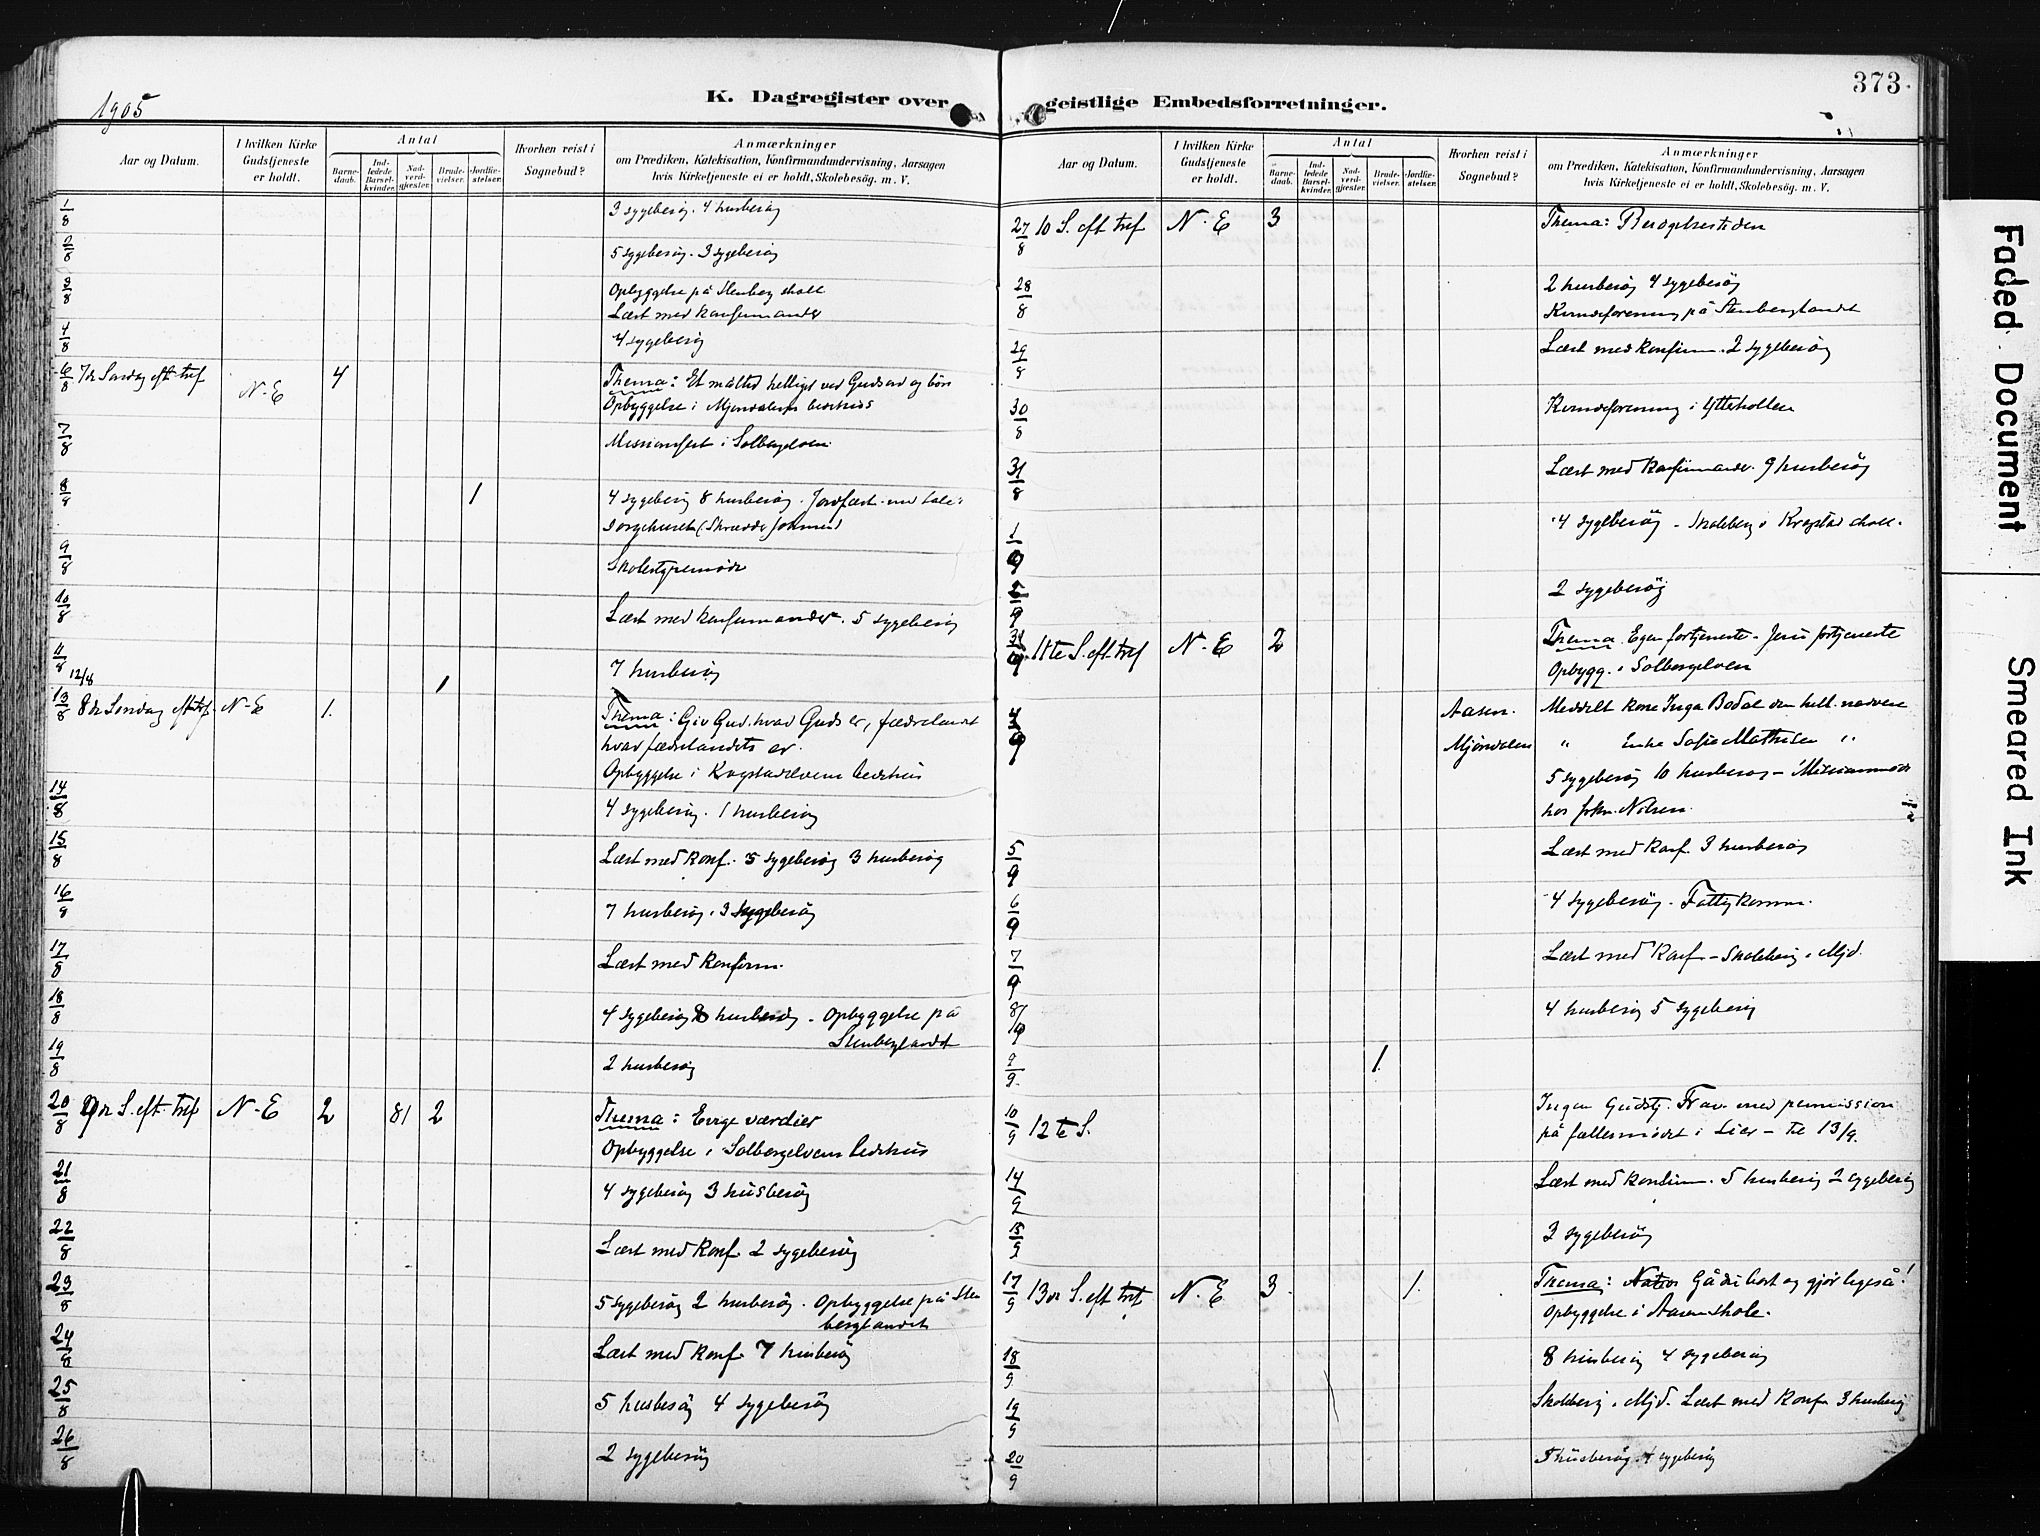 1905
K. Dagregister over
Aar og Datum.
I hvilken Kirke Gudstjeneste er holdt.
Antal
Barnedaab.
Indledede Barselkvinder.
Nadverdgjester.
Brudevielser.
Jordfæstelser.
Hvorhen reist i Sognebud?
Anmærkninger
om Prædiken, Katekisation, Konfirmandundervisning, Aarsagen
hvis Kirketjeneste ei er holdt, Skolebesög. m. V.
1/8 3 sygebesög. 4 husbesög
2/8 5 sygebesög. 3 sygebesög
3/8 Opbyggelse på Stenberg skole
Læst med konfirmander
4/8 4 sygebesög
6/8 7de Söndag eft. tref. N-E 4 Thema: Et måltid helliget ved Guds ord og bön
Opbyggelse i Mjöndalens bedehus
7/8 Missionsfest i Solbergelven
8/8 1 4 sygebesög 8 husbesög. Jordfæst. med tale i
Sorgehuset
9/8 Skolestyremöde
10/8 Læst med konfirmander. 5 sygebesög
11/8 7 husbesög
12/8 1
13/8 8de Söndag eft. tref. N-E 1. Thema: Giv Gud, hvad Guds er, fædrelandet
hvad fædrelandets er.
Opbyggelse i Krogstadelvens bedehus
14/8 4 sygebesög. 1 husbesög
15/8 Læst med konf. 5 sygebesög 3 husbesög
16/8 7 husbesög. 3 sygebesög
17/8 Læst med konfirm.
18/8 4 sygebesög 8 husbesög. Opbyggelse på
Stenberglandet
19/8 2 husbesög
20/8 9de S. eft. tref N-E 2 81 2 Thema: Evige værdier
Opbyggelse i Solbergelvens bedehus
21/8 4 sygebesög 3 husbesög
22/8 Læst med konf. 2 sygebesög
23/8 5 sygebesög 2 husbesög. Opbyggelse på Sten
berglandet
24/8 Læst med konf. 7 husbesög
25/8 5 husbesög 4 sygebesög
26/8 2 sygebesög
373.
geistlige Embedsforretninger.
Aar og Datum.
I hvilken Kirke Gudstjeneste er holdt.
Antal
Barnedaab.
Indledede Barselkvinder.
Nadverdgjester.
Brudevielser.
Jordfæstelser.
Hvorhen reist i Sognebud?
Anmærkninger
om Prædiken, Katekisation, Konfirmandundervisning, Aarsagen
hvis Kirketjeneste ei er holdt, Skolebesög. m. V.
27/8 10 S. eft tref N-E 3 Thema: Besögelsestiden
28/8 2 husbesög 4 sygebesög
Kvindeforening på Stenberglandet
29/8 Læst med konfirm. 2 sygebesög
30/8 Kvindeforening i Ytterkollen
31/8 Læst med konfirmander. 9 husbesög
1/9 4 sygebesög - Skolebesög i Krogstad skole.
2/9 2 sygebesög
3/9 11te S. eft. tref N-E 2 Thema. Egen fortjeneste - Jesu fortjeneste
Opbygg. i Solbergelven
4/9 Aasen. Meddelt kone Inga Bodal den hell. nadvere
Mjöndalen " Enke Sofie Mathisen "
5 sygebesög 10 husbesög - Missionsmöde
hos frkn. Nilsen.
5/9 Læst med konf. 3 husbesög
6/9 4 sygebesög. Fattigkomm.
7/9 Læst med konf - Skolebesög i Mjd.
8/9 4 husbesög 5 sygebesög
9/9. 1
10/9 12te S. Ingen Gudstj. Fravær med permission
på fællesmödet i Lier - til 13/9.
14/9 Læst med konfirm. 5 husbesög 2 sygebesög
15/9 3 sygebesög
17/9 13de S. eft tref N-E 3. 1. Thema: Gå du bort og gjör ligeså!
Opbyggelse i Aasen skole.
18/9 8 husbesög 4 sygebesög
19/9 Skolebesög i Mjd. Læst med konf. 3 husbesög
20/9 7 husbesög. 4 sygebesög
Faded Document
Smeared Ink